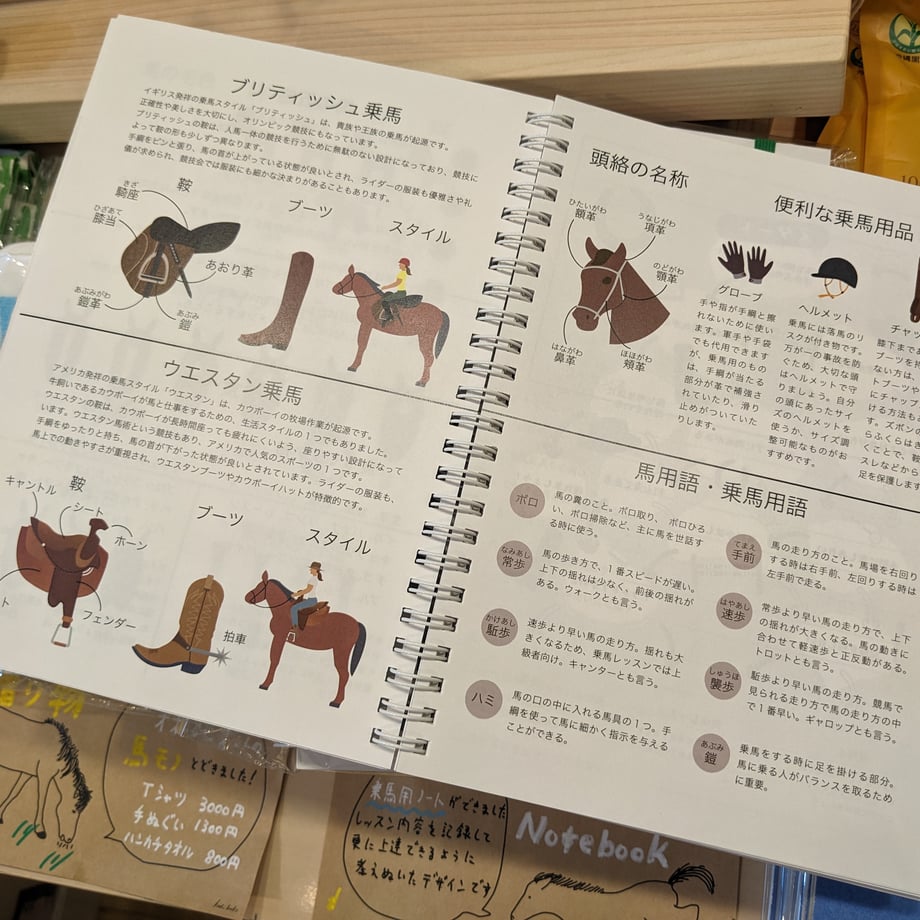 ブリティッシュ乗馬
イギリス発祥の乗馬スタイル「ブリティッシュ」は、貴族や王族の乗馬が起源です。
正確性や美しさを大切にし、オリンピック競技にもなっています。
ブリティッシュの鞍は、人馬一体の競技を行うために無駄のない設計になっており、競技に
よって鞍の形も少しずつ異なります。
手綱をピンと張り、馬の首が上がっている状態が良いとされ、ライダーの服装も優雅さや礼
儀が求められ、競技会では服装にも細かな決まりがあることもあります。
鞍
きざ
騎座
ひざあて
膝当
あおり革
あぶみがわ
鐙革
あぶみ
鐙
ブーツ
スタイル
ウエスタン乗馬
アメリカ発祥の乗馬スタイル「ウエスタン」は、カウボーイの牧場作業が起源です。
牛飼いであるカウボーイが馬と仕事をするための、生活スタイルの1つでもありました。
ウエスタンの鞍は、カウボーイが長時間座っても疲れにくいよう、座りやすい設計になって
います。ウエスタン馬術という競技もあり、アメリカで人気のスポーツの1つです。
手綱をゆったりと持ち、馬の首が下がった状態が良いとされています。ライダーの服装も、
馬上での動きやすさが重視され、ウエスタンブーツやカウボーイハットが特徴的です。
鞍
キャントル
シート
ホーン
ト
フェンダー
ブーツ
拍車
スタイル
頭絡の名称
ひたいがわ
額革
うなじがわ
項革
のどがわ
顎革
はながわ
鼻革
ほほがわ
頬革
便利な乗馬用品
グローブ
手や指が手綱と擦
れないために使い
ます。軍手や手袋
でも代用できます
が、乗馬用のもの
は、手綱が当たる
部分が革で補強さ
れていたり、滑り
止めがついていた
りします。
ヘルメット
乗馬には落馬のリ
スクが付き物です。
万が一の事故を防
ぐため、大切な頭
はヘルメットで守
りましょう。自分
の頭にあったサイ
ズのヘルメットを
使うか、サイズ調
整可能なものがお
すすめです。
チャッ
膝下まで
ブーツを持
ない方は、
トブーツや
にチャップ
ける方法も
す。ズボンの
らふくらは
くことで、鞍
スレなどから
足を保護します
馬用語・乗馬用語
ボロ
馬の糞のこと。ボロ取り、ボロひろ
い、ボロ掃除など、主に馬を世話す
る時に使う。
なみあし
常歩
馬の歩き方で、1番スピードが遅い。
上下の揺れは少なく、前後の揺れが
ある。ウォークとも言う。
かけあし
駈歩
速歩より早い馬の走り方。揺れも大
きくなるため、乗馬レッスンでは上
級者向け。キャンターとも言う。
ハミ
馬の口の中に入れる馬具の1つ。手
綱を使って馬に細かく指示を与える
ことができる。
てまえ
手前
馬の走り方のこと。馬場を右回り
する時は右手前、左回りする時は
左手前で走る。
はやあし
速歩
常歩より早い馬の走り方で、上下
の揺れが大きくなる。馬の動きに
合わせて軽速歩と正反動がある。
トロットとも言う。
しゅうほ
襲歩
駈歩より早い馬の走り方。競馬で
見られる走り方で馬の走り方の中
で1番早い。ギャロップとも言う。
あぶみ
鐙
乗馬をする時に足を掛ける部分。
馬に乗る人がバランスを取るため
に重要。
馬モノ とどきました!
Tシャツ 3000円
手ぬぐい 1300円
ハンカチタオル 800円
乗馬用ノートができました
レッスン内容を記録して
更に上達できるように
考えぬいたデザインです
Notebook